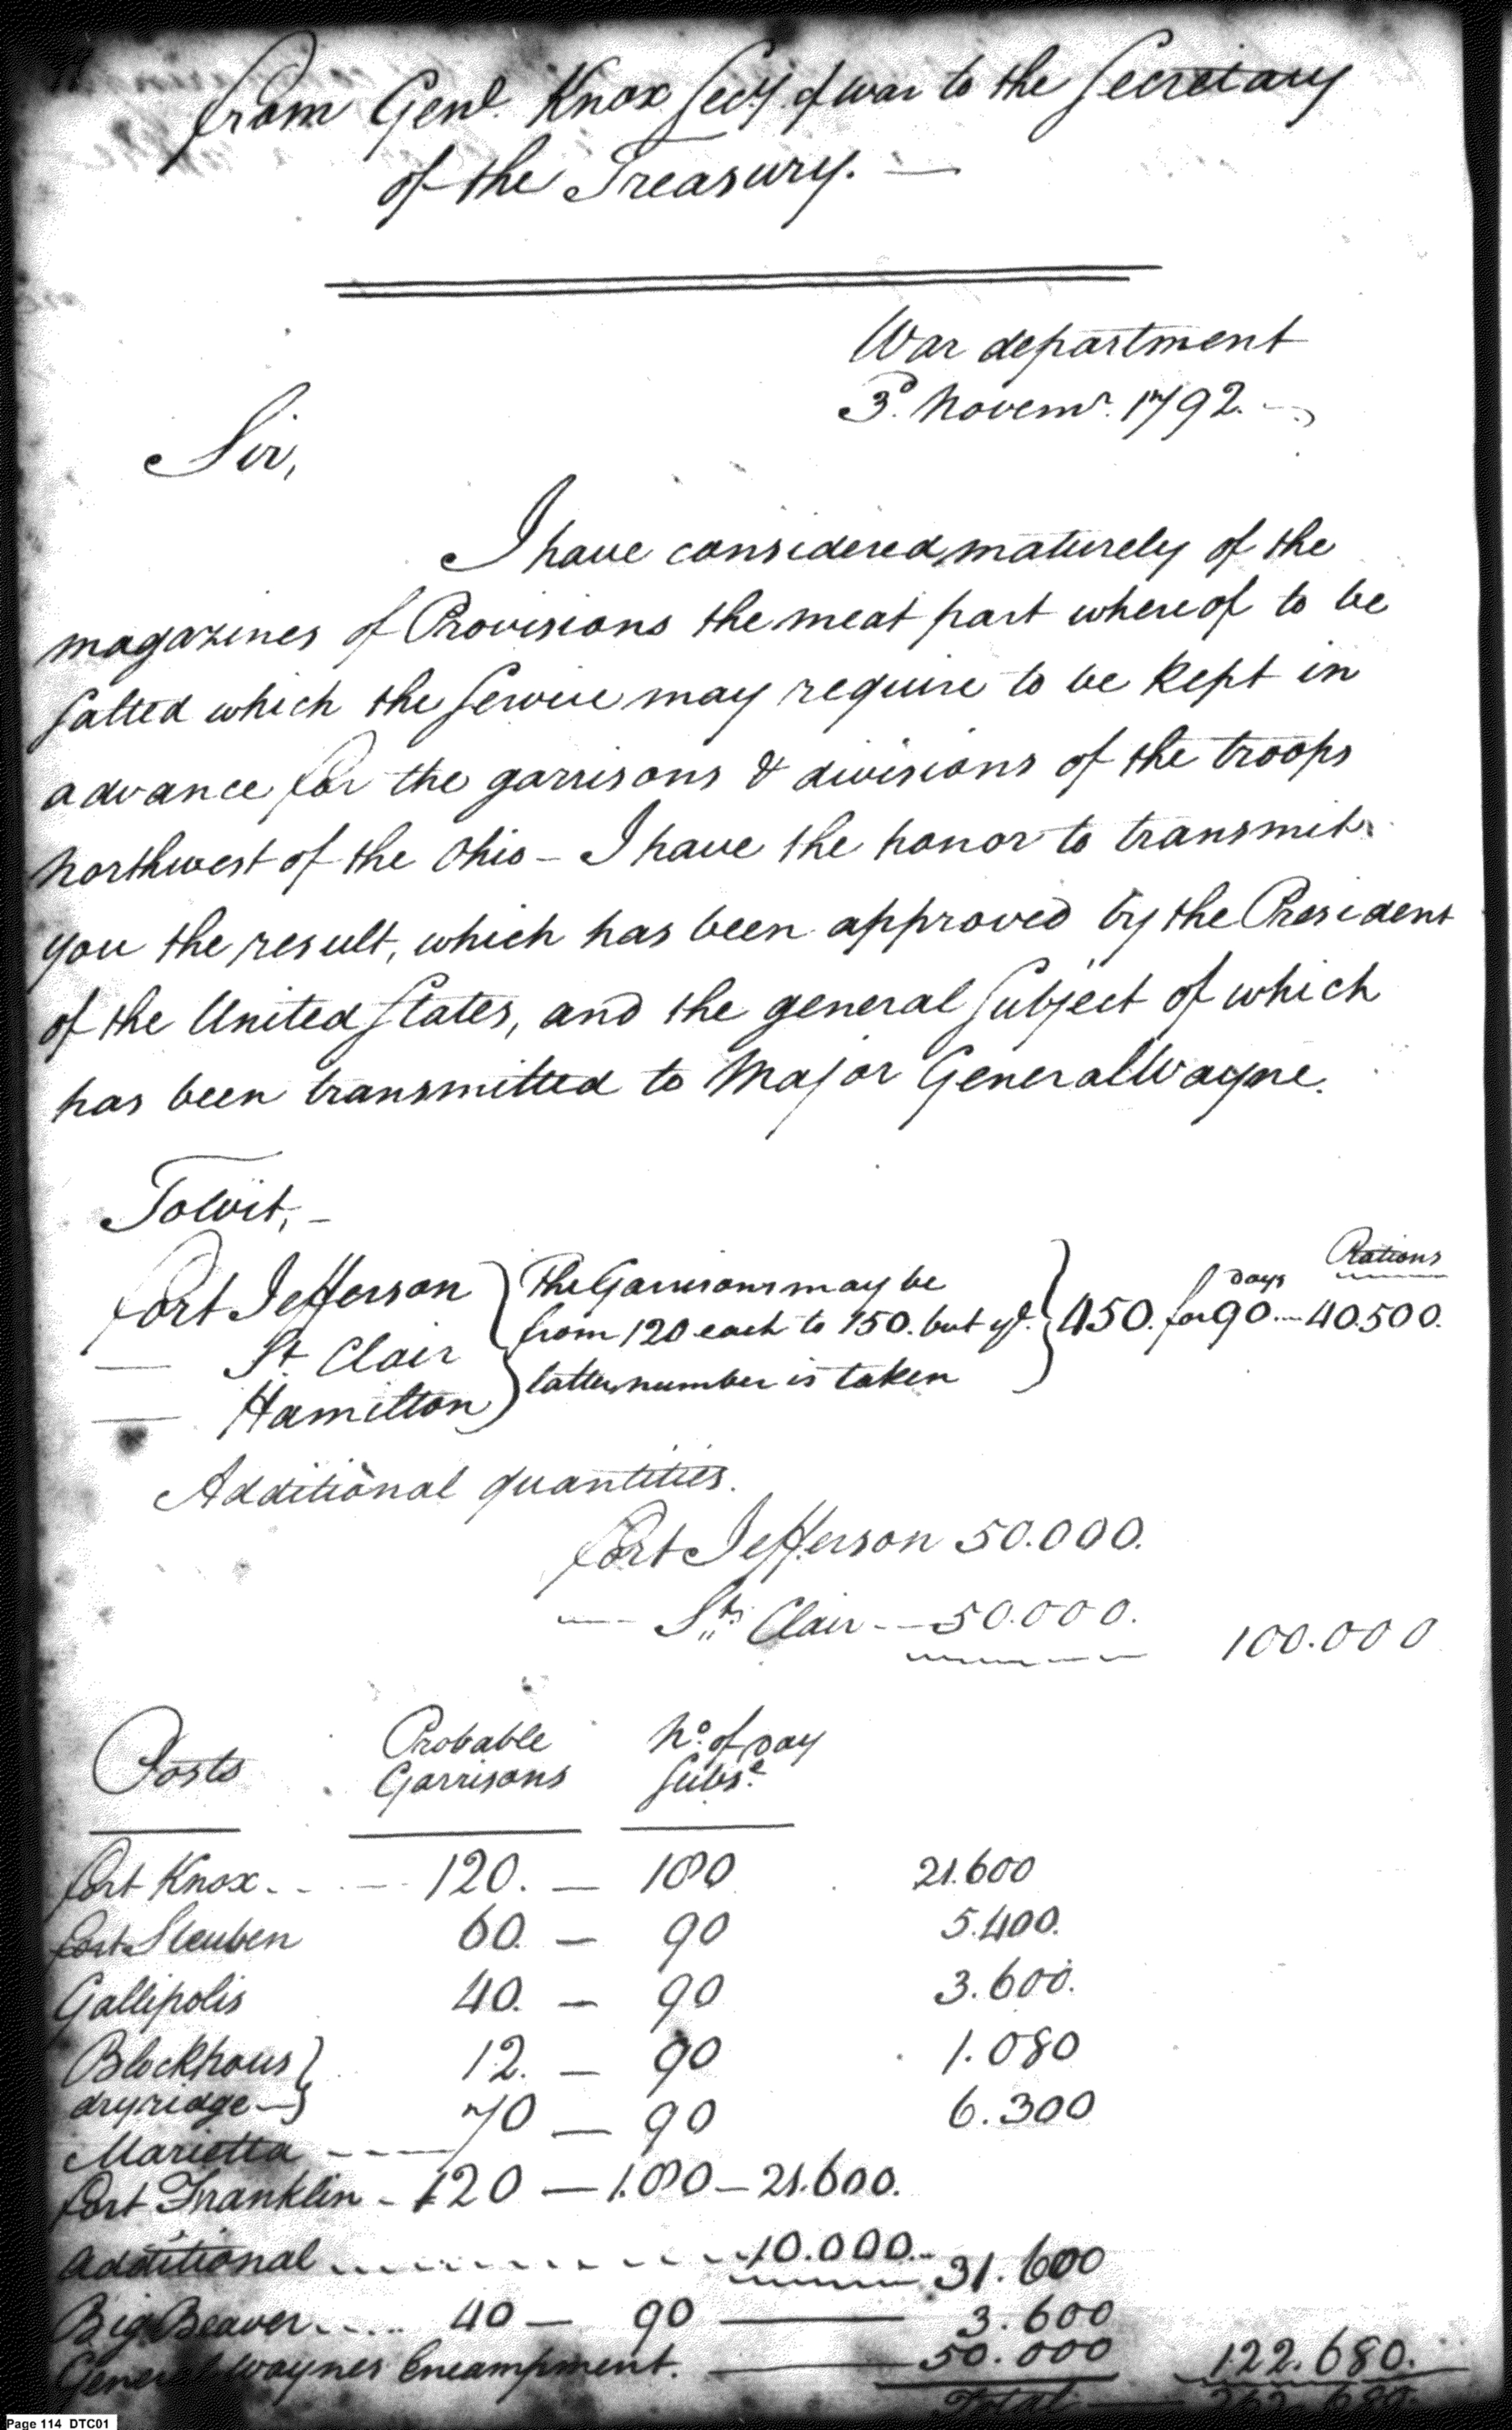 from Genl. Knox Secy. of war to the Secretary
of the Treasury. —
War department
3d. Novemr. 1792.
Sir,
I have considered maturely of the
magazines of Provisions the meat part whereof to be
salted which the Service may require to be kept in
advance for the garrisons & divisions of the troops
Northwest of the Ohio - I have the honor to transmit
you the result, which has been approved by the President
of the United States, and the general Subject of which
has been transmitted to Major General Wayne.
Towit, -
Rations
Fort Jefferson } The Garrisons may be
from 120 each to 150. but ye. } 450. for 90 days .... 40.500.
— St. Clair
latter number is taken
— Hamilton
Additional quantities.
Fort Jefferson 50.000.
— St. Clair - - 50.000. 100.000
Posts Probable Garrisons No. of day Subse.
Fort Knox - - - - 120. — 180 21.600
Fort Steuben 60. — 90 5.400.
Gallipolis 40. — 90 3.600.
Blockhous } 12. — 90 1.080
dryridge }
Marietta - - - - 70 — 90 6.300
Fort Franklin - 120 — 180 — 21.600.
Additional - - - - - - - - 10.000. - 31.600
Big Beaver .... 40 — 90 — 3.600
General Waynes Encampment. — 50.000 122.680.
Total — 262.680.
Page 114 DTC01